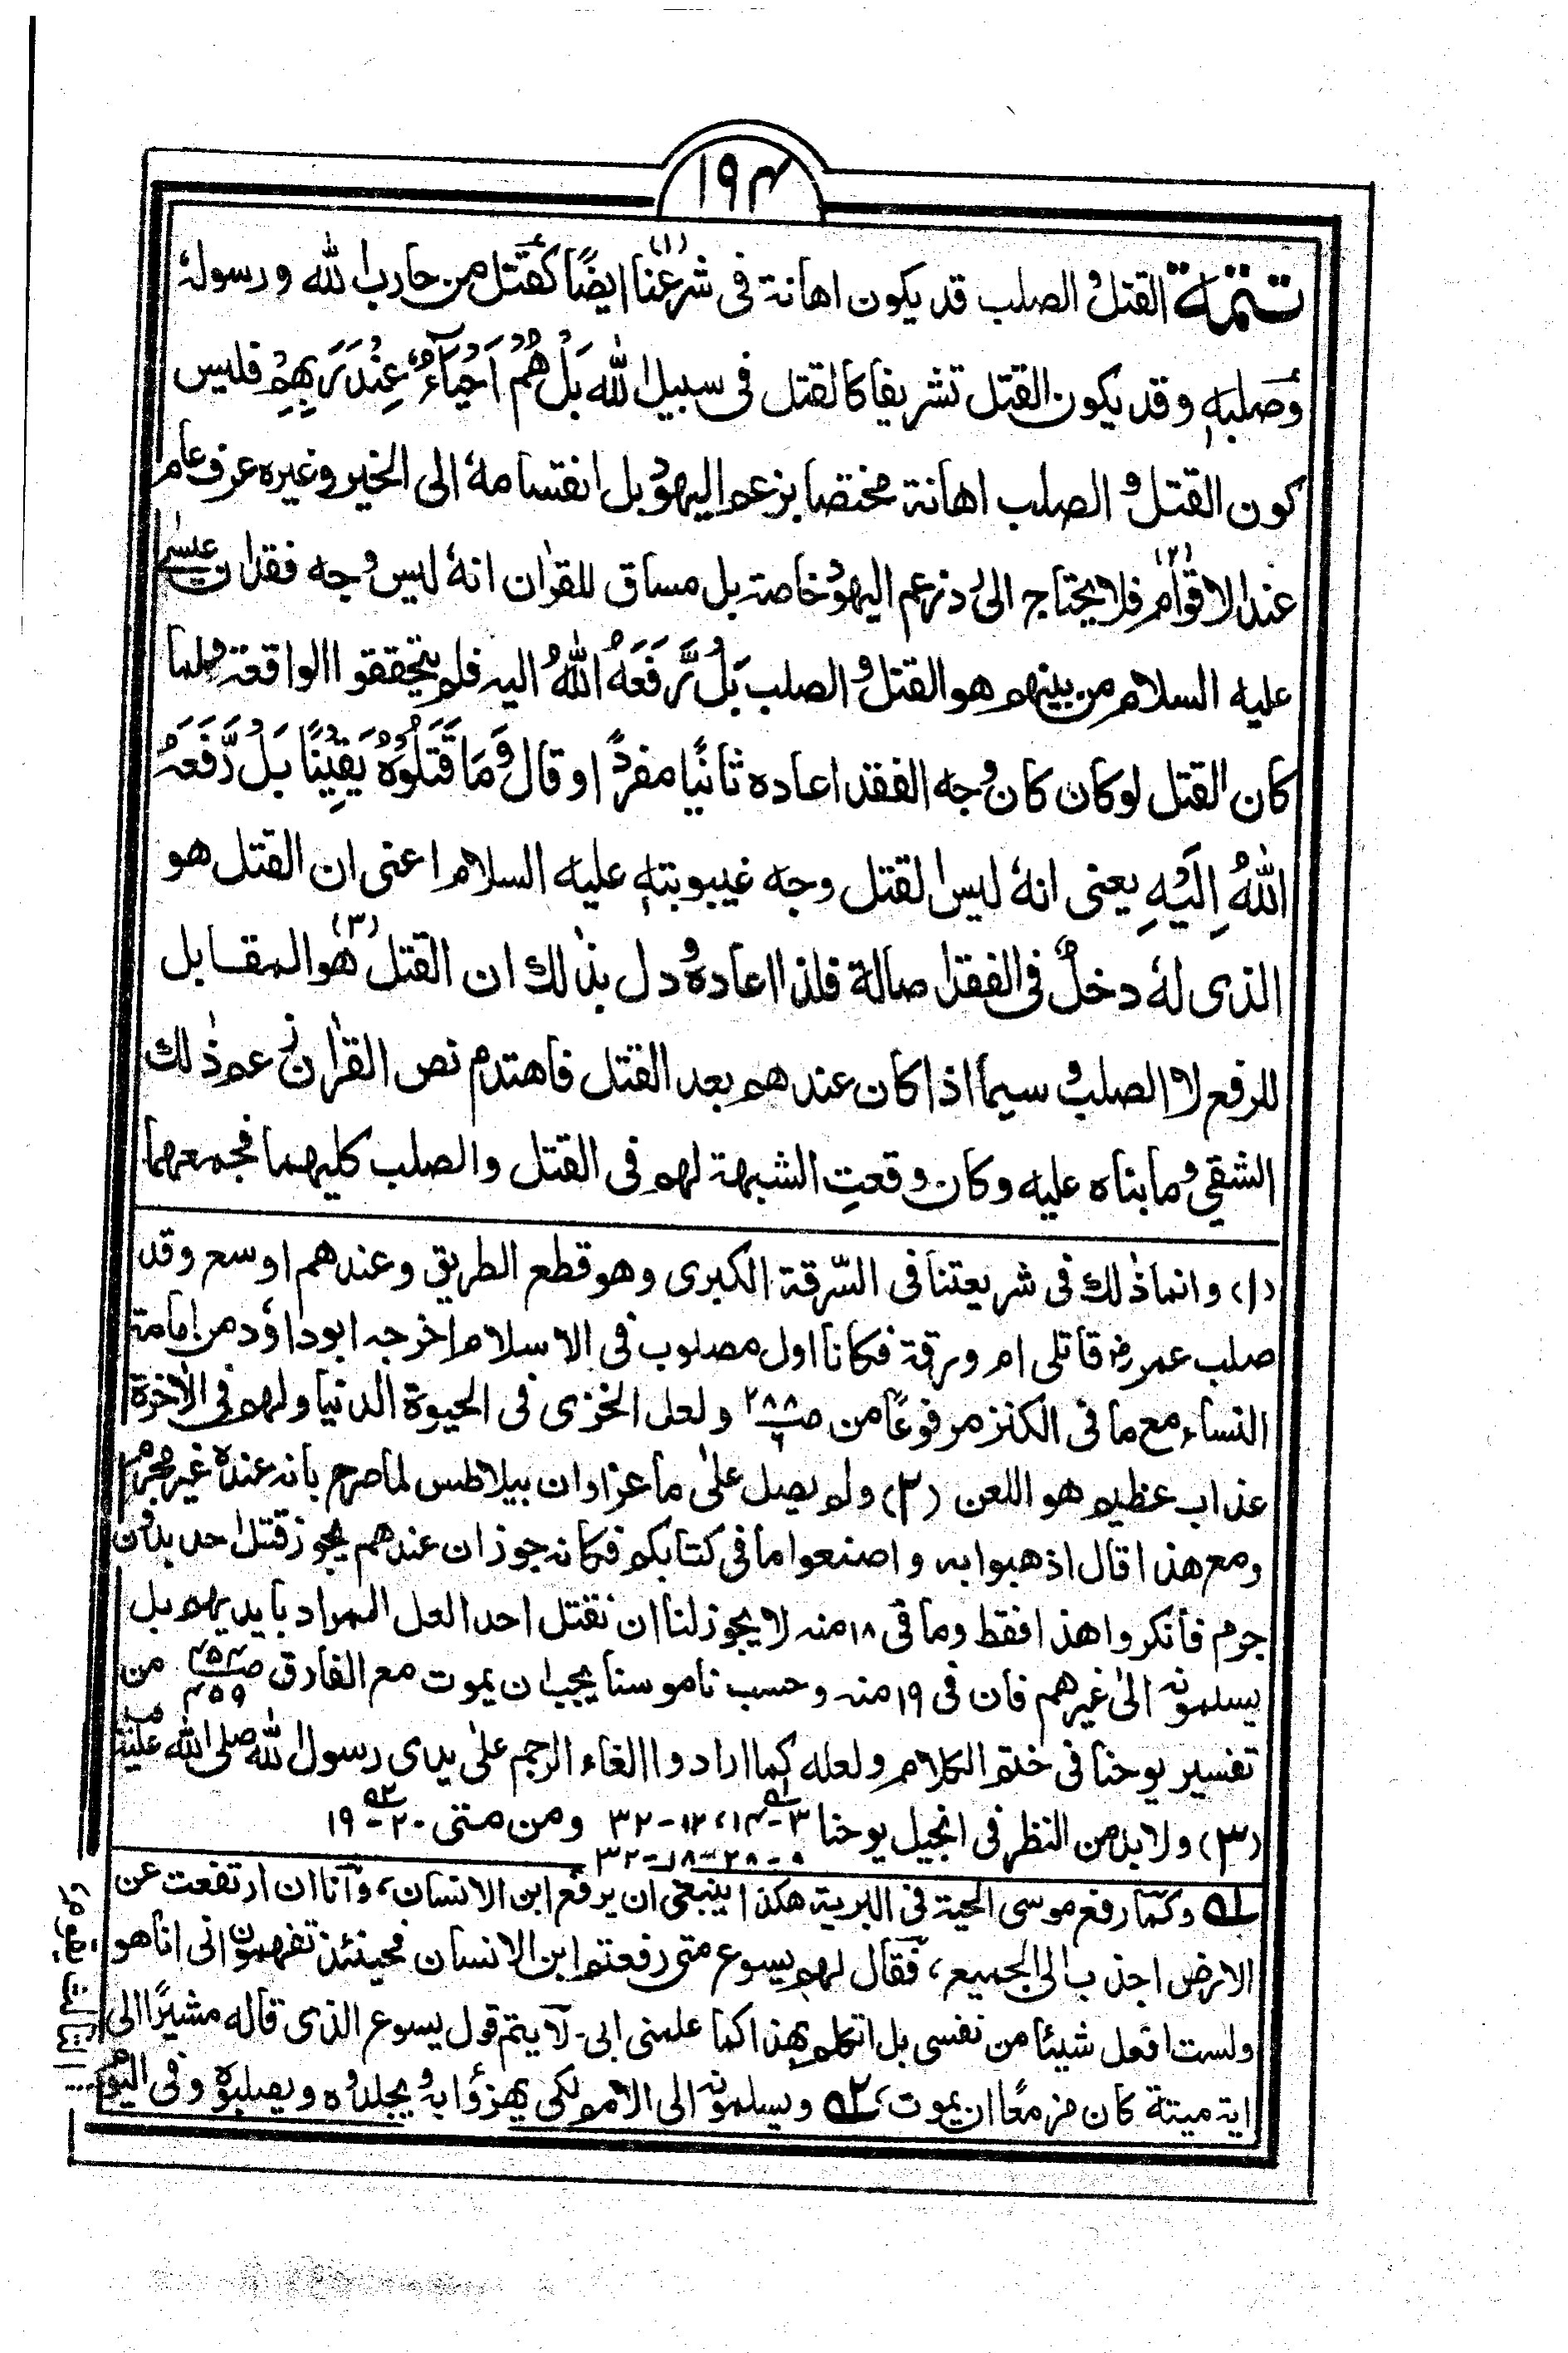 ١٩٤
تتمة القتل و الصلب قد يكون اهانة فى شرعنا(١) ايضًا كقتل من حارب الله و رسولهٗ
وصلبه وقد يكون القتل تشريفا كالقتل فى سبيل الله بَلْ هُمْ اَحْيَآءٌ عِنْدَ رَبِّهِمْ فليس
كون القتل و الصلب اهانة مختصا بزعم اليهود بل انقسامهٗ الى الخير وغيره عرف عام
عند الاقوام(٢) فلا يحتاج الى رد زعم اليهود خاصة بل مساق للقراٰن انهٗ ليس وجه فقدان عيسىٰ
عليه السلام من بينهم هو القتل و الصلب بَلْ رَّفَعَهُ اللهُ اليه فلم يتحققوا الواقعة ولما
كان القتل لو كان كان وجه الفقد اعاده ثانيًا مفردًا وقال وَمَا قَتَلُوْهُ يَقِيْنًا بَلْ رَّفَعَهُ
اللهُ اِلَيْهِ يعنى انهٗ ليس القتل وجه غيبوبته عليه السلام اعنى ان القتل هو
الذى لهٗ دخلٌ فى الفقد اصالة فلذا اعاده و دل بذٰلك ان القتل هو(٣) المقابل
للرفع لا الصلب و سيما اذا كان عندهم بعد القتل فاهتدم نص القراٰن زعم ذٰلك
الشقي و ما بناه عليه وكان وقعتِ الشبهة لهم فى القتل والصلب كليهما فجمعهما
(١) وانما ذٰلك فى شريعتنا فى السّرقة الكبرى وهو قطع الطريق وعندهم اوسع وقد
صلب عمر رض قاتلى ام ورقة فكانا اول مصلوب فى الاسلام اخرجه ابوداوٗد من امامة
النساء مع ما فى الكنز مرفوعًا من صـ٢٨٨ـ٦ ولعل الخزى فى الحيوة الدنيا ولهم فى الاٰخرة
عذاب عظيم هو اللعن (٢) ولم يصل علىٰ ما عزاو ان بيلاطس لما صرح بانه عنده غير مجرم
ومع هذا قال اذهبوا به واصنعوا ما فى كتابكم فكانه جوز ان عندهم يجوز قتل احد بدون
جرم فأنكروا هذا فقط وما فى ١٨ منه لا يجوز لنا ان نقتل احدا لعل المراد بايديهم بل
يسلمونه الىٰ غيرهم فان فى ١٩ منه وحسب ناموسنا يجب ان يموت مع الفارق صـ٤٥٤ـ٤٥٩ من
تفسير يوحنا فى ختم الكلام ولعله كما ارادوا الغاء الرجم علىٰ يدى رسول الله صلى الله عليه
(٣) ولا بد من النظر فى انجيل يوحنا ٣-١٤، ١٢-٣٢ ومن متى ٢٠-١٩
٨-٢٨-١٨-٣٢
١ه وكما رفع موسى الحية فى البرية هكذا ينبغى ان يرفع ابن الانسان، وانا ان ارتفعت عن
الارض اجذب الى الجميع، فقال لهم يسوع متى رفعتم ابن الانسان فحينئذ تفهمون انى انا هو
ولست افعل شيئا من نفسى بل اتكلم بهذا كما علمنى ابى- لا يتم قول يسوع الذى قاله مشيرًا الى
اية ميتة كان مزمعًا ان يموت، ٢ه ويسلمونه الى الامم لكى يهزؤا به و يجلدوه ويصلبوه وفى اليوم
الثالث يقوم